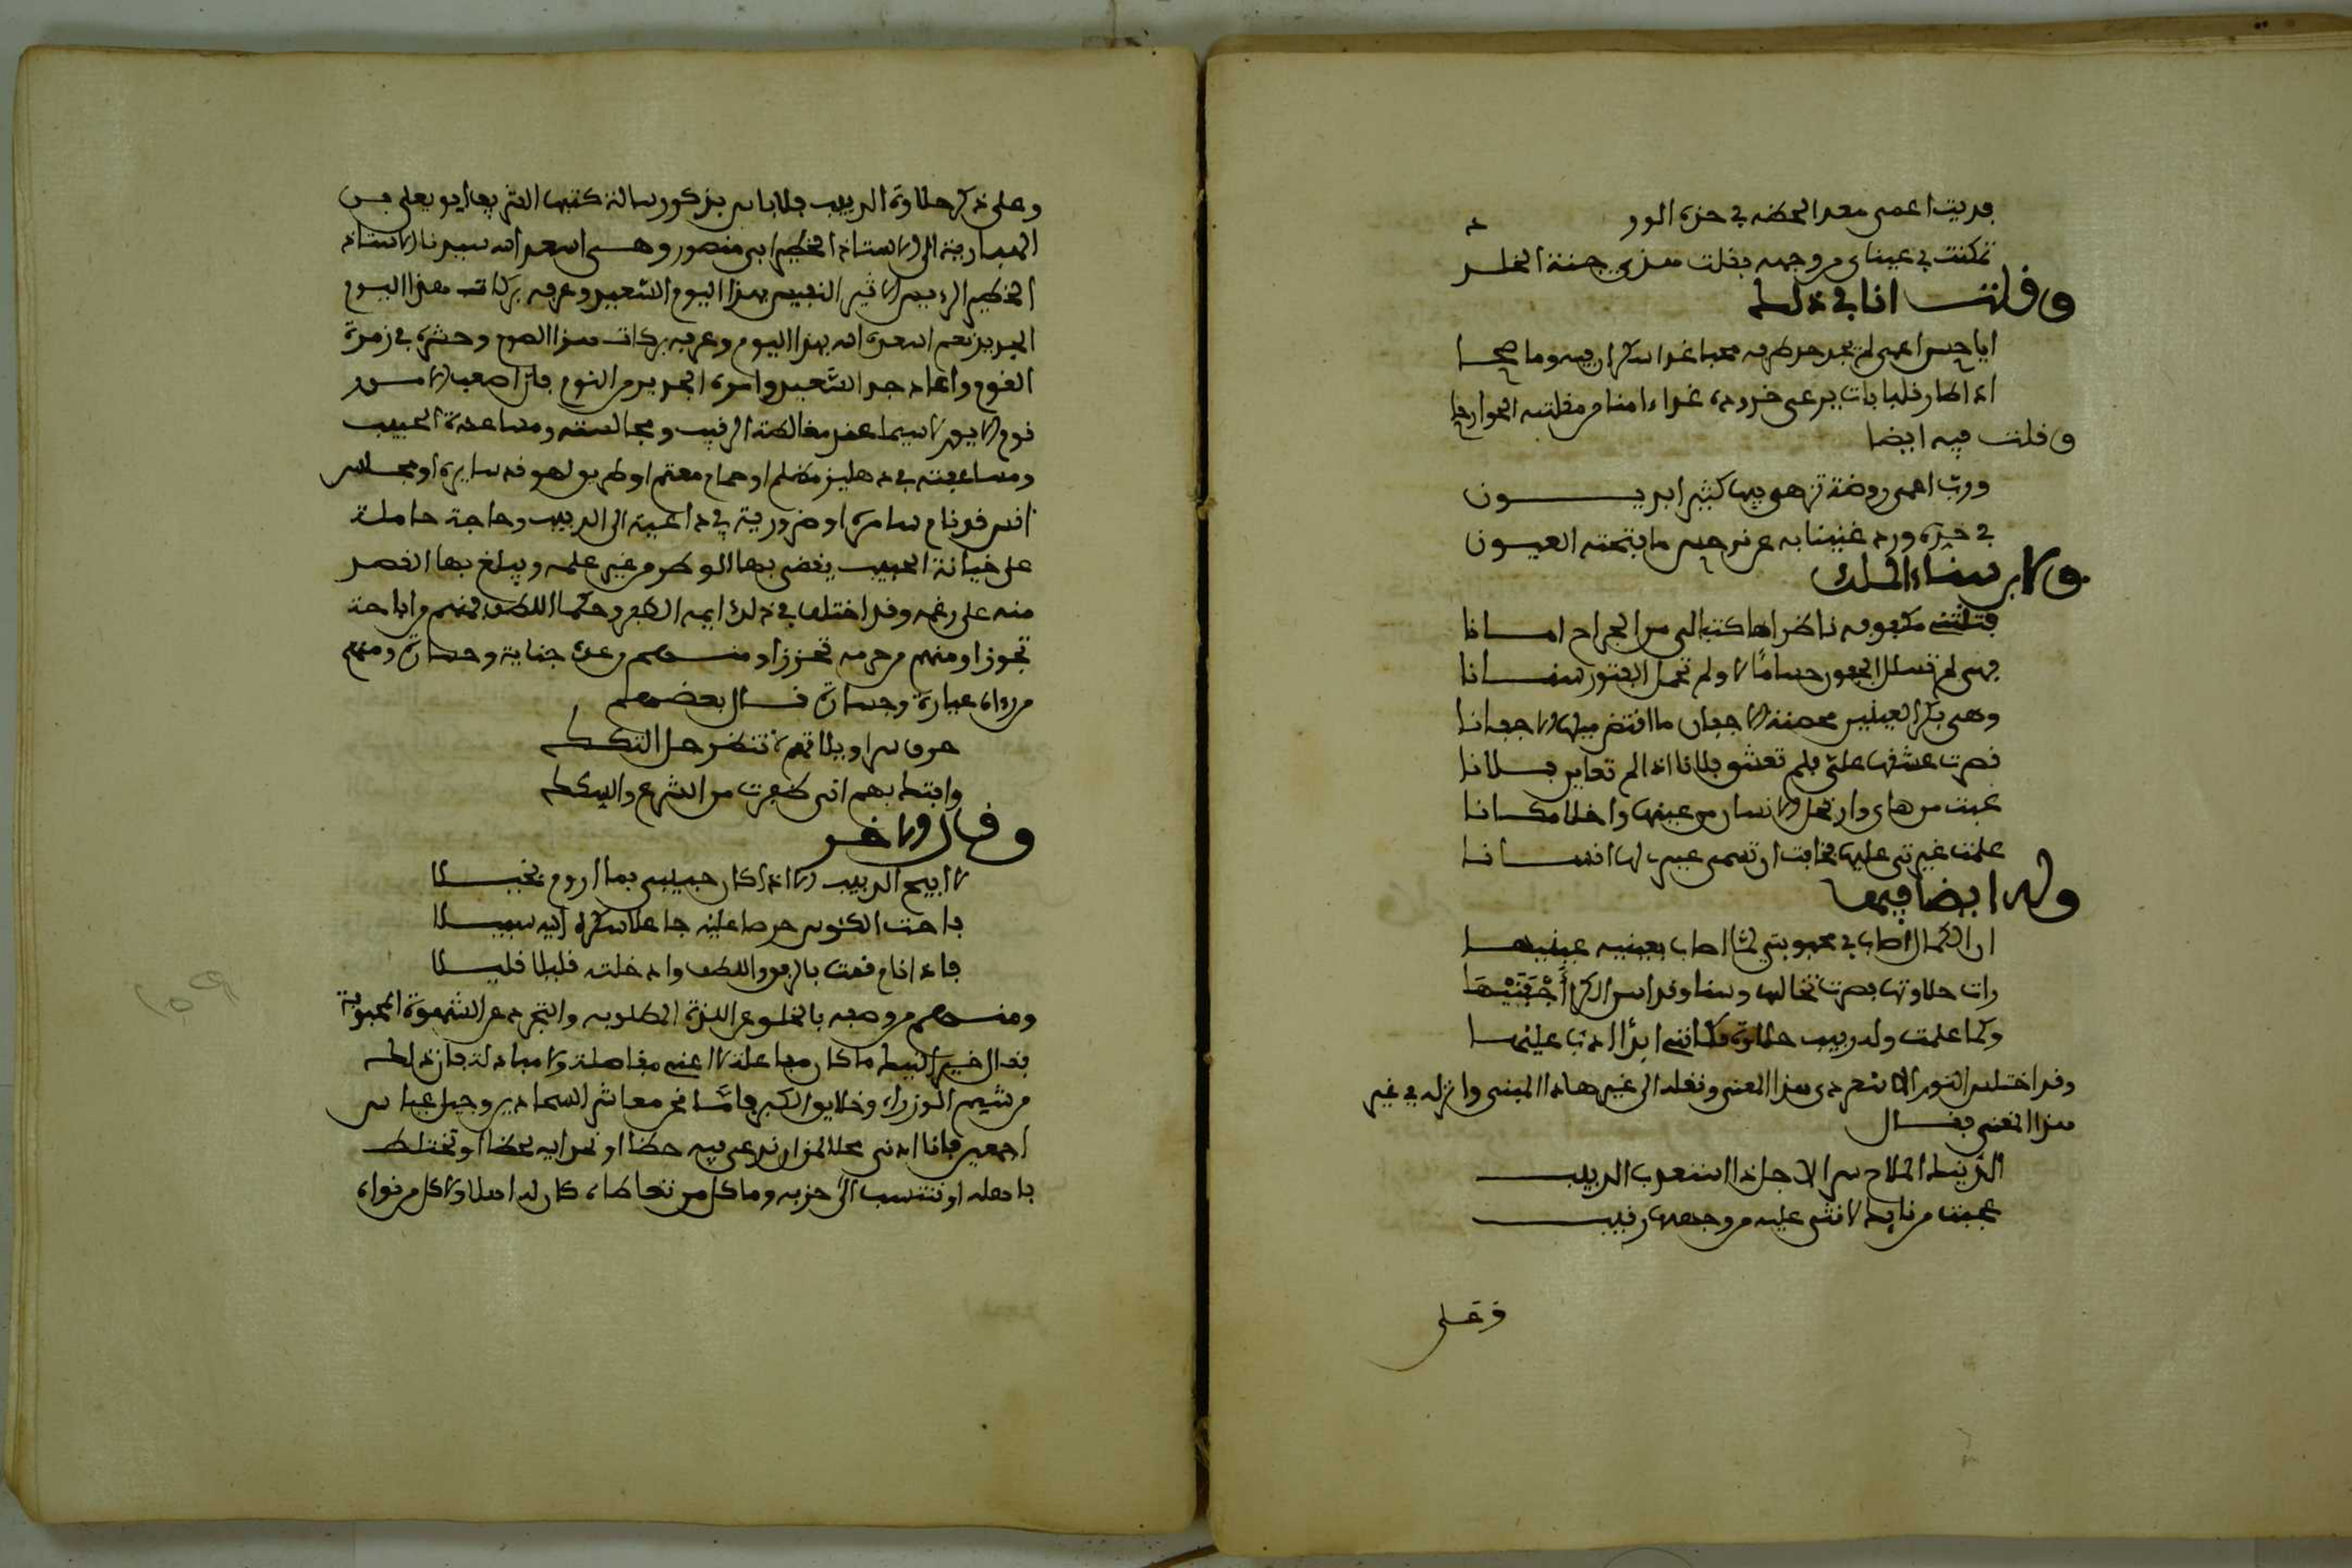 فديت اعمى مغمد لحظه في خده الورد
تمكنت عيناي من وجهه فقلت هذي جنة الخلد
وقلت انا في ذلك
ايا حسن اعمى لم يجد حد طرفه محبا غدا سكران فيه وما صحا
اذا طار قلب بات يرعى خدوده غدا امنا من مقلتيه الجوارحا
وقلت فيه ايضا
ورب اعمى روضة تزهى فيها كثير ابديــون
في خده ورد غنينا به عن نرجس ما فتحته العيون
ولابن سناء الملك
فتنتني مكفوفة ناظراها كتبا لي من الجراح امانا
فهي لم تسلل الجفون حساما لا ولم تحمل الفتور سنانا
وهي بكر العينين محصنة الاجفان ما افتض ميلها الاجفانا
قصرت عشقها علي فلم تعشق فلانا اذ لم تعاين فلانا
عميت من هواي وارتحل الانسان من عينها واخلا مكانا
علمت غيرتي عليها فخافت ان تسمى عيني لها انسانا
وله ايضا فيها
ان الكمال اصاب في محبوبتي لما اصاب بعينيه عينيها
زادت حلاوتها فصرت تخالها وسنا وقد اسر الكرى اجفنيها
وكما علمت ولد دبيب حلاوة فكانني ابدا ادب عليها
وقد اختلس النور الاسعردي هذا المعنى ونقله الى غير هاذا المبنى وانزله في غير
هذا المغنى فقال
الذ نيك الملاح سرا لاجل ذا استعذب الدبيب
عجبت من نايك لانثى عليه من وجهها رقيب
وعلى
وعلى ذكر حلاوة الدبيب فلا باس بذكر رسالة كتبها الشريف ابو يعلى بن
الهبارية الى الاستاذ الخطير ابي منصور وهي اسعد الله سيدنا الاستاذ
الخطير الرءيس الاثير النجيب بهذا اليوم السعيد وعرفه بركات هذا اليوم
الجديد نعم اسعده الله بهذا اليوم وعرفه بركات هذا الصوم وحشره في زمرة
القوم واعاد جد السعيد وامره الجديد من النوم فان اصعب الامور
نوم الاير لا سيما عند مغالطة الرقيب ومجالسته ومساعدة الحبيب
ومساعفته في دهليز مظلم او حمام معتم او طريق لهو قد سايره او مجلس
انس قد نام سامره او ضرورية في داعية الى الدبيب وحاجة حاملة
على خيانة الحبيب يقضى بها الوطر من غير علمه ويبلغ بها القصد
منه على رغمه وقد اختلف في ذلك ايمة الظرف وحكما اللطف فمنهم من اباحه
تجوزا ومنهم من حرمه تحززا ومنهم من عده جناية وخسارة ومنهم
من رءاه عيارة وجسارة قال بعضهم
خرق سراويلاتهم لا تنتظر حل التكك
وافتك بهم اني ظفرت من الشرع والسكك
وقال الاخر
لا ابيح الدبيب الا اذا كان حبيبي بما اروم بخيلا
فاحث الكئوس حرصا عليه جاعلا سكره اليه سبيلا
فاذا نام قمت بالرفق واللطف وادخلته قليلا قليلا
ومنهم من وصفه بالخلو عن اللذة المطلوبة والتجرد عن الشهوة المحبوبة
فقال خير النيك ما كان مفاعلة لا اعني مفاضلة ولا مبادلة فان ذلك
من شيم الوزراء وخلايق الكبراء فامّا نحن معاشر السمادير وجيل عباس
اجمعين فانا ادنى محلا من ان ندعي فيه حظا او نحرابه لحظا او نختلط
باهله او ننتسب الى حزبه وما كل من تعاطاه كان له اهلا ولا كل من نواه